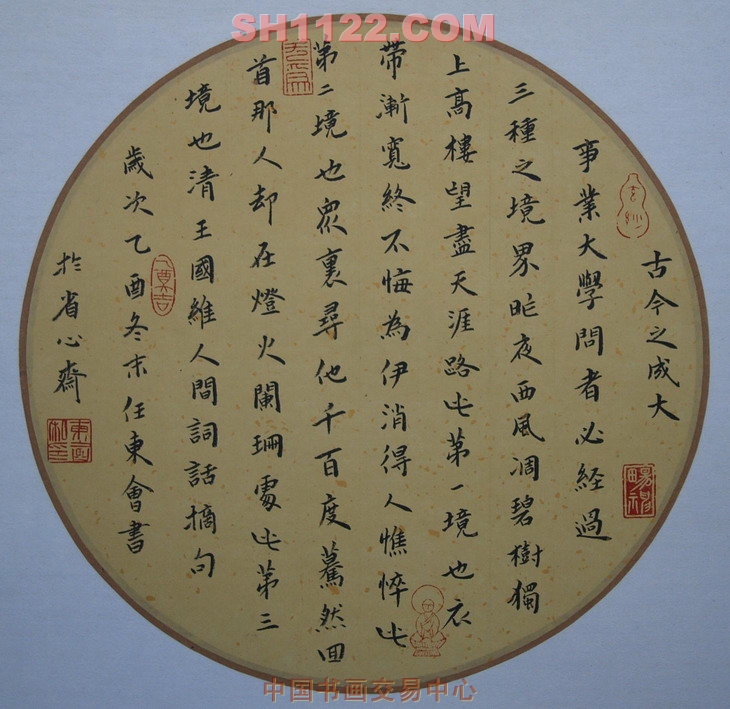 SH1122.COM
古今之成大
事業大學問者必經過
三種之境界昨夜西風凋碧樹獨
上高樓望盡天涯路此第一境也衣
帶漸寬終不悔為伊消得人憔悴此
第二境也眾裏尋他千百度驀然回
首那人却在燈火闌珊處此第三
境也清王國維人間詞話摘句
歲次乙酉冬末任東會書
於省心齋
中国书画交易中心